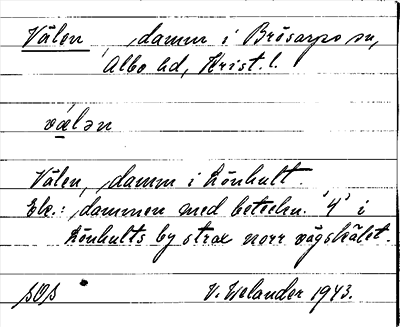 Välen, damm i Brösarps sn,
Albo hd, Krist. l.
vælən
Välen, damm i Lönhult.
Ek.: dammen med beteckn. "4" i
Lönhults by strax norr vägskälet.
SOS V. Welander 1943.